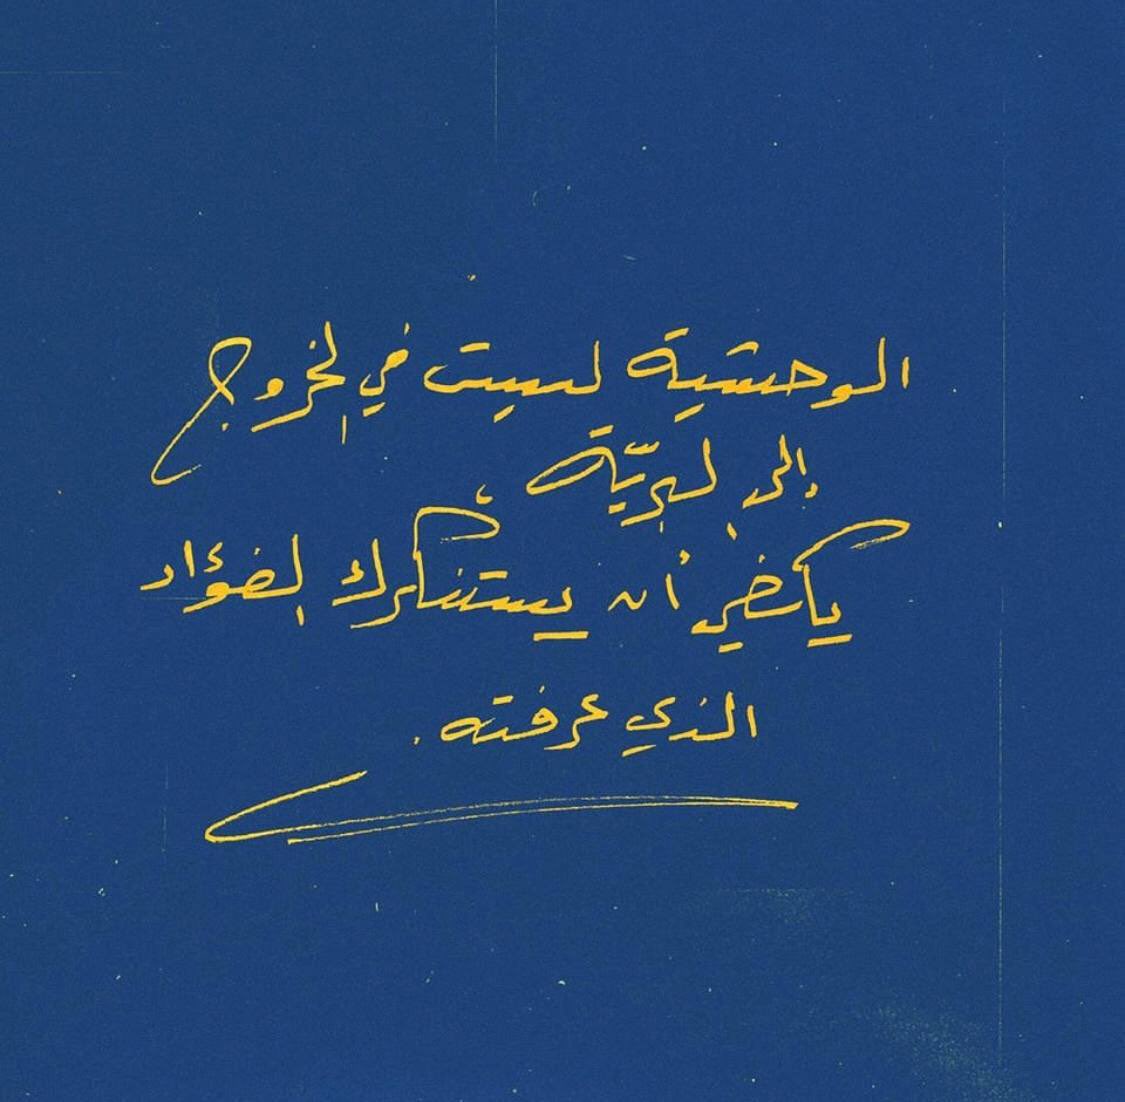 الوحشية ليست في الخروج
إلى البريّة،
يكفي أن يستنكرك الفؤاد
الذي عرفته.